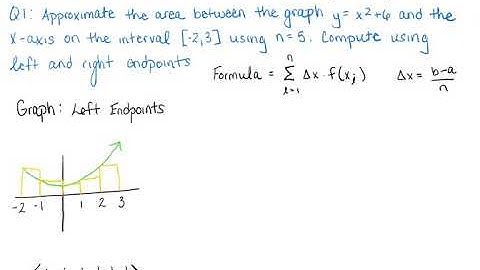 Q1: Approximate the area between the graph y= x²+6 and the
x-axis on the interval [-2,3] using n=5. Compute using
left and right endpoints
Formula = n Σ i=1 Δx · f(xᵢ) Δx = b-a / n
Graph: Left Endpoints
-2 -1 1 2 3